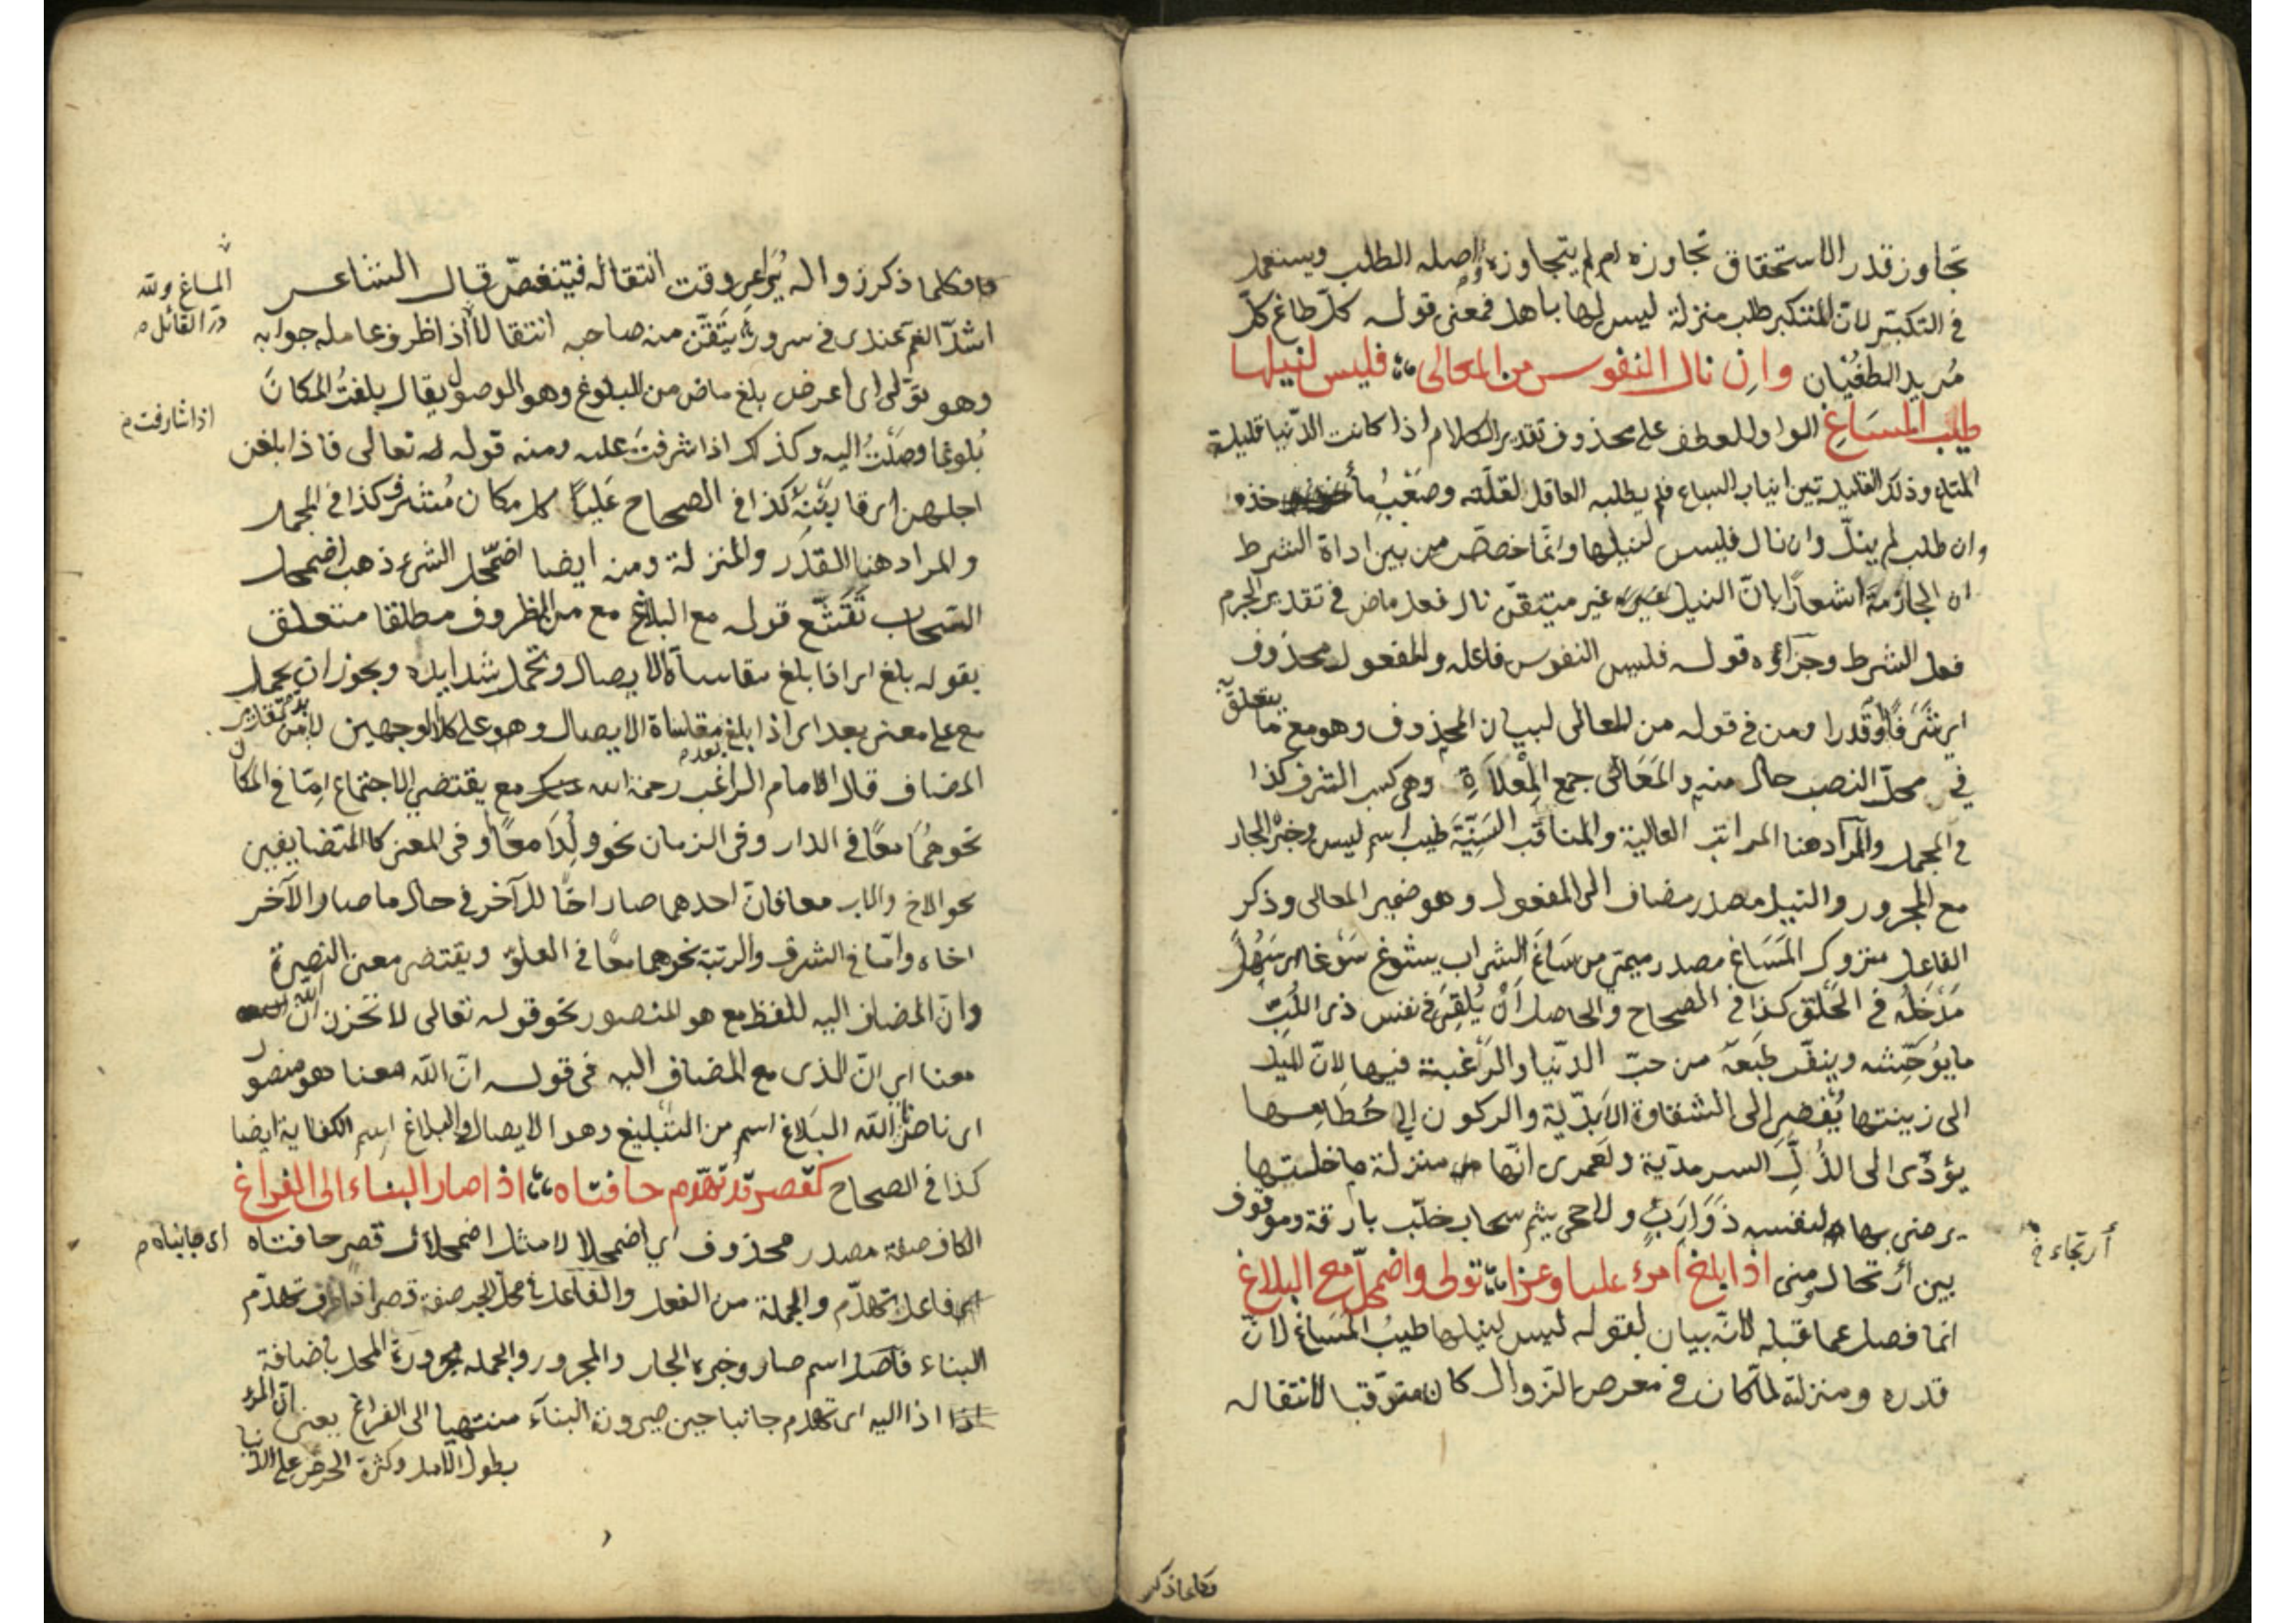 تجاوز قدر الاستحقاق تجاوزه ام لم يتجاوزه واصله الطلب ويستعمل
في التكبّر لانّ المتكبر طلب منزلة ليس لها باهل فمعنى قوله كلّ طاغ كلّ
مُريد الطغيان وان نال النفوس من المعالى فليس لنيلها
طيب المَسَاغِ الواو للعطف على محذوف تقدير الكلام اذا كانت الدّنيا قليلة
المتاع وذلك القليل بين انياب السباع فلم يطلبه العاقل لقلّته وصَعْبُ مأخذه
وان طلب لم ينلّ وان نال فليس لنيلها وانّما خصّص من بين اداة الشرط
ان الجازمة اشعارًا بانّ النيل غير متيقّن نال فعل ماض في تقدير الجزم
فعل الشرط وجزاؤه قوله فليس النفوس فاعله والمفعول محذوف
اى شَرَفًا وقَدرا ومن في قوله من المعالى لبيان المحذوف وهو مع ما يتعلّق به
في محلّ النصب حال منه والمَعَالى جمع المِعْلاَةِ وهى كسب الشرف كذا
في المجمل والمراد هنا المراتب العالية والمناقب السَنِيّة طيب اسم ليس وخبره الجار
مع المجرور والنيل مصدر مضاف الى المفعول وهو ضمير المعالى وذكر
الفاعل متروك المَسَاغ مصدر ميمى من سَاغَ الشراب يسوغ سَوْغا اى سَهُلَ
مَدْخَلُه في الحَلْق كذا في الصحاح والحاصل اَنْ يُلقِىَ في نفس ذى اللُبِّ
ما يُوحِّشه وينفّر طبَعهُ من حبّ الدّنيا والرَغبة فيها لانّ الميل
الى زينتها يُفْضِى الى الشقاوة الاَبَدّية والركون الى حُطَامها
يؤدّى الى الذُلِّ السرمديّة ولَعمرى انّها منزلة ما خليتها
يرضى بها لنفسه ذَوَ اِرَبٍ ولا حىّ يشم سحاب خلّب بارقة وموقوف
بين أرتحال ومنى اذا بلغ امرء عليا وعزا تولى واضمحلّ مع البلاغ
أرتجاء خ
انما فصل عما قبله لانّه بيان لقوله ليس لنيلها طيبُ المَسَاغ لانّ
قدره ومنزلته لمّا كان في معرض الزوال كان متوقبا لانتقاله
فكلما ذكر
فكلما ذكر زواله يُرَاعى وقت انتقاله فيتنغصّ قال الشاعر
المساغ ولله درّ القائل م
اشدّ الغم عندى في سرور يَتَقّن منه صاحبه انتقالا اذا ظرف عامله جوابه
وهو تولّى اى اعرض بلغ ماض من البلوغ وهو الوصول يقال بلغتُ المكانَ
اذا شارفت م
بُلوغا وصَلْتُ اليه وكذلك اذا شرفتَ عليه ومنه قوله تعالى فاذا بلغن
اجلهن اى قاربْنَهُ كذا في الصحاح عَليَا كل مكان مُشرف كذا في المجمل
والمراد هنا القدَر والمنزلة ومنه ايضا اضمّحل الشئ ذهب اضمحل
السّحاب تَقَشّع قوله مع البلاغ مع من الظروف مطلقا متعلق
بقوله بلغ اى اذا بلغ مقاساة الايصال وتحمل شدايده ويجوز ان يحمل
مع على معنى بعد اى اذا بلغ بعد مقاساة الايصال وهو على كلا الوجهين لا بدّ من تقدير
المضاف قال الامام الراغب رحمه الله مع يقتضى الاجتماع امّا في المكان
نحو هُمَا معًا في الدار وفى الزمان نحو وُلِدَا معًا وفى المعنى كالمتضايفين
نحو الاخ والاب معا فانّ احدهما صار اخًا للآخر في حال ما صار الآخر
اخاه وامّا في الشرف والرتبة نحو هما معًا في العلوّ ويقتضى معنى النصرة
وانّ المضاف اليه للفظ مع هو المنصور نحو قوله تعالى لا تحزن انّ اللّه
معنا اى انّ الذى مع المضاف اليه في قوله انّ اللّه معنا هو منصور
اى ناصرنا اللّه البَلاغ اسم من التبليغ وهو الايصال والبلاغ اسم الكفاية ايضا
كذا في الصحاح كقصر قد تهدّم حافتاه اذا صار البناء الى الفراغ
الكاف صفة مصدر محذوف اى اضمحلالا مثل اضمحلال قصر حافتاه
اى جانباه م
فاعل تهدّم والجملة من الفعل والفاعل في محلّ الجرّ صفة قصر اذا ظرف تهدّم
البناء فاصَل اسم صار وخبره الجار والمجرور والجمله مجرورة المحل باضافة
اذا اليه اى تهدم جانبا حين صيرورة البناء منتهيا الى الفراغ يعنى انّ المرء
بطول الامل وكثرة الحرص على الدّنيا